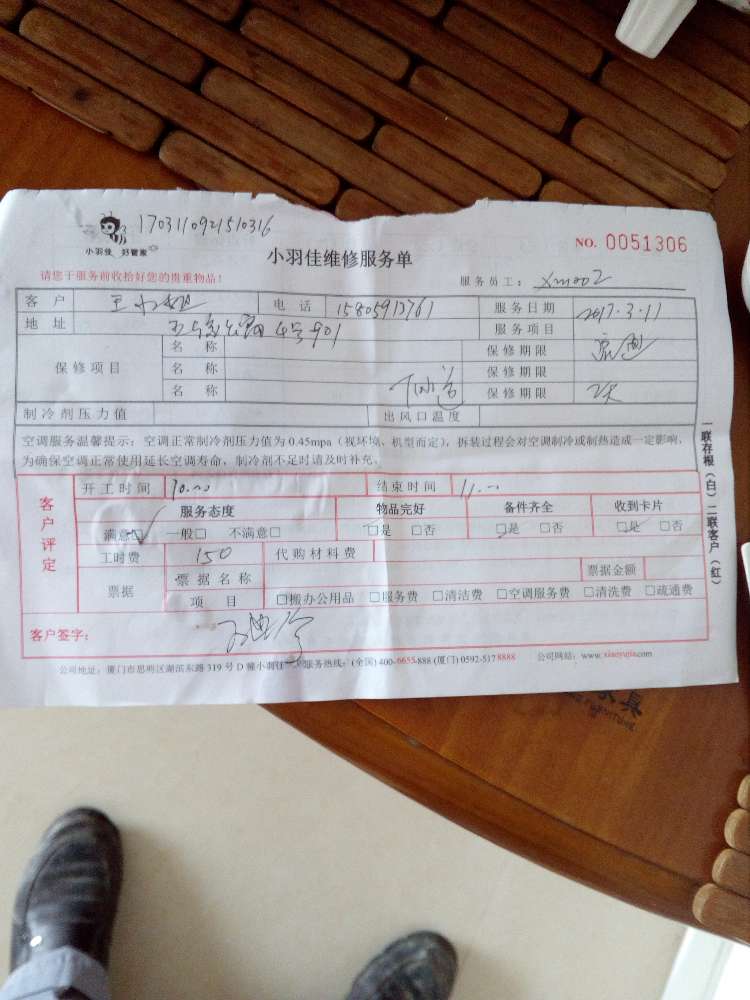 1703110921510316
小羽佳 好管家
小羽佳维修服务单
NO. 0051306
请您于服务前收拾好您的贵重物品！
服务员工： xm002
客户 王小姐 电话 15805913761 服务日期 2017.3.11
地址 4号901 服务项目
保修项目
名称 保修期限
名称 保修期限
名称 下水道 保修期限 2天
制冷剂压力值 出风口温度
空调服务温馨提示：空调正常制冷剂压力值为 0.45mpa（视环境、机型而定），拆装过程会对空调制冷或制热造成一定影响，
为确保空调正常使用延长空调寿命，制冷剂不足时请及时补充。
客户评定
开工时间 10:00 结束时间 11:00
服务态度 物品完好 备件齐全 收到卡片
满意□ 一般□ 不满意□ □是 □否 □是 □否 □是 □否
工时费 150 代购材料费
票据 票据名称 票据金额
项目 □搬办公用品 □服务费 □清洁费 □空调服务费 □清洗费 □疏通费
客户签字：
公司地址：厦门市思明区湖滨东路 319 号 D 幢小羽佳 服务热线：(全国) 400-6655-888 (厦门) 0592-5178888 公司网站：www.xiaoyujia.com
一联存根（白）二联客户（红）
家具
FURNITURE